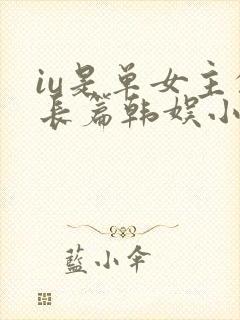 iu是单女主
长篇韩娱小
蓝小伞